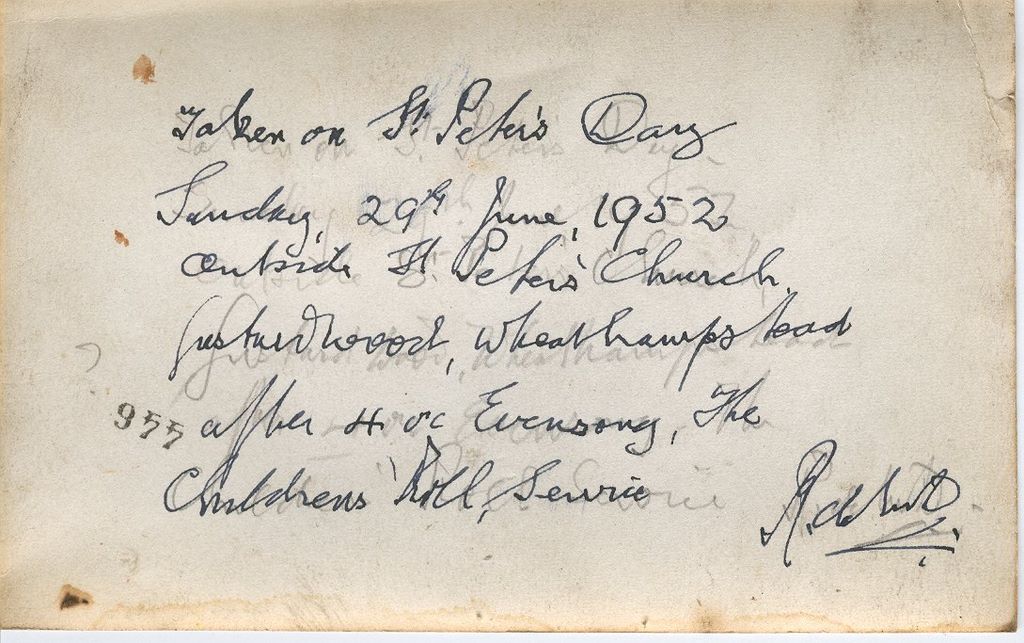 Taken on St. Peter's Day
Sunday, 29th June, 1952
outside St Peter's Church,
Gustardwood, Wheathampstead
955 after 4 oc Evensong, The
Childrens' Roll, Service